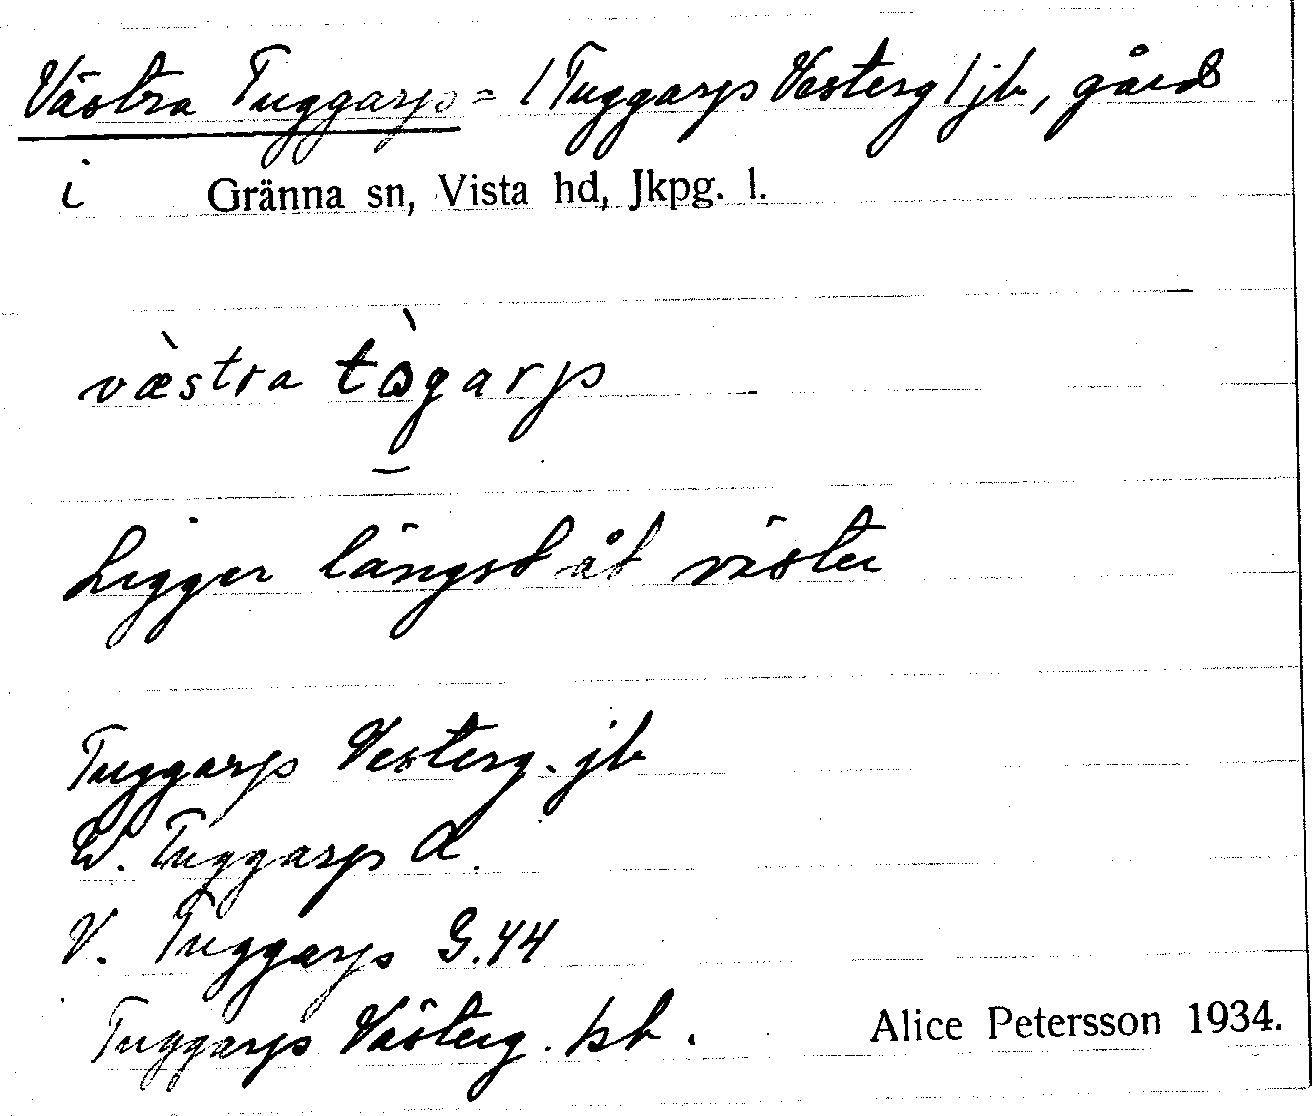 Västra Tuggarp = (Tuggarps Vesterg) jb, gård
i Gränna sn, Vista hd, Jkpg. l.
væ̀stra tògarp
Ligger längst åt väster
Tuggarps Vesterg. jb
W. Tuggarps A.
V. Tuggarps G.44
Tuggarps Västerg. psb.
Alice Petersson 1934.